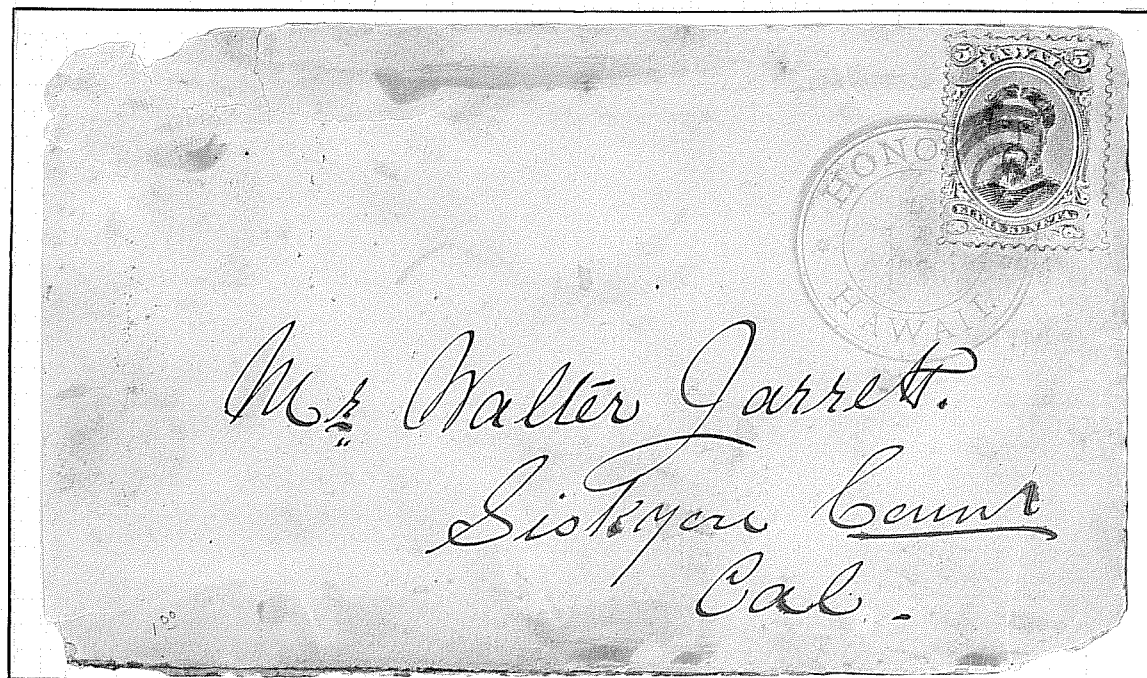 5 5
HONO
HAWAII.
Mr Walter Jarrett.
Siskyou Count
Cal.
1 00